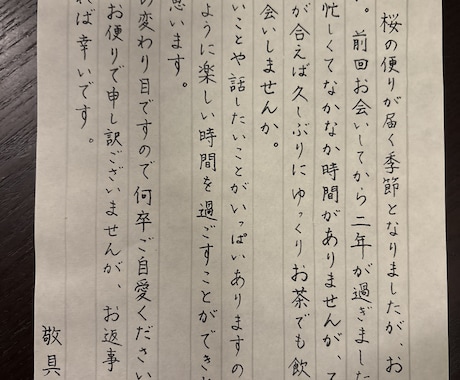 桜の便りが届く季節となりましたが、お
。前回お会いしてから二年が過ぎました
忙しくてなかなか時間がありませんが、
が合えば久しぶりにゆっくりお茶でも飲
会いしませんか。
いことや話したいことがいっぱいありますの
ように楽しい時間を過ごすことができ
思います。
の変わり目ですので何卒ご自愛ください
お便りで申し訳ございませんが、お返事
れば幸いです。
敬具